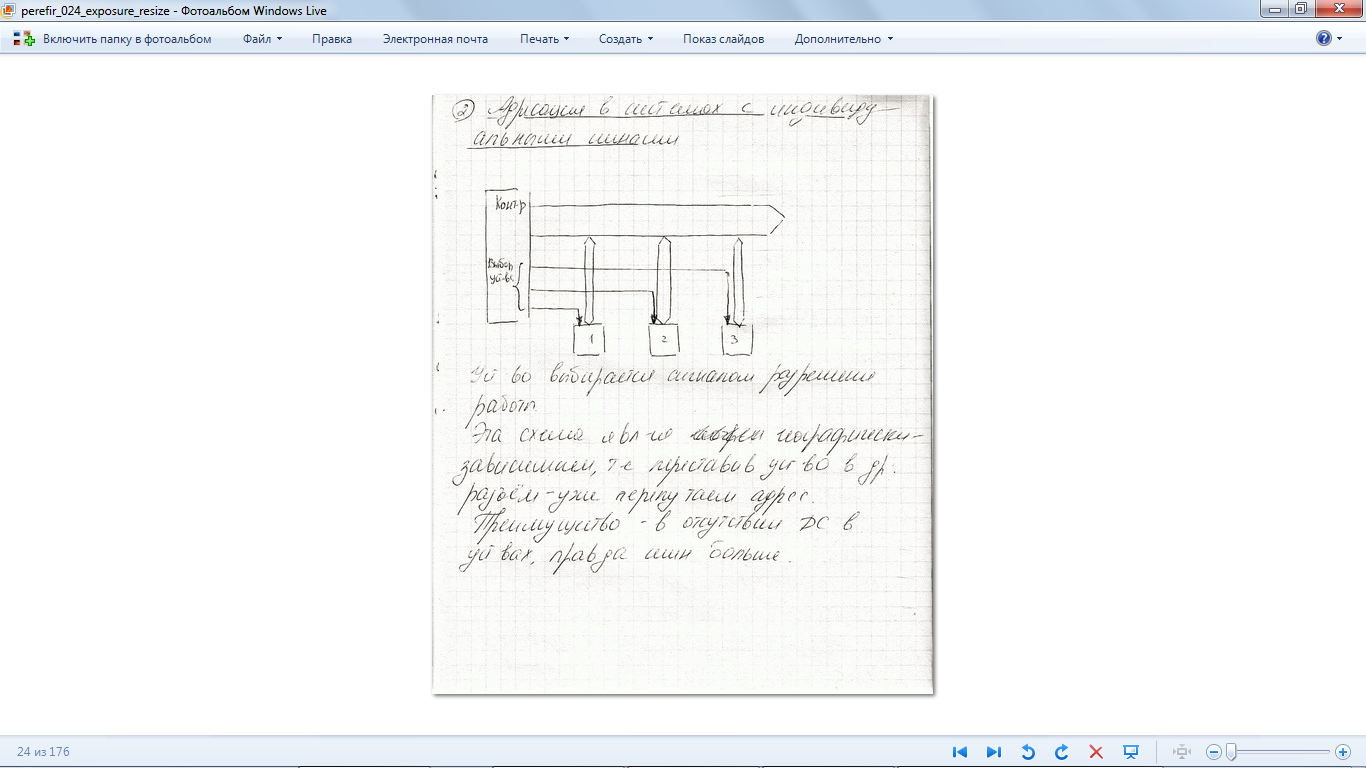 perefir_024_exposure_resize - Фотоальбом Windows Live
Включить папку в фотоальбом Файл Правка Электронная почта Печать Создать Показ слайдов Дополнительно
② Адресация в системах с индивиду-
альными шинами
Контр
Выбор
уй-ва
1 2 3
Уй-во выбирается сигналом разрешения
работы.
Эта схема явл-ся географически-
зависимием, т-е переставив уй-во в др.
разъём-уже перепутаем адрес.
Преимущество - в отсутствии DC в
уй-вах, правда шин больше.
24 из 176